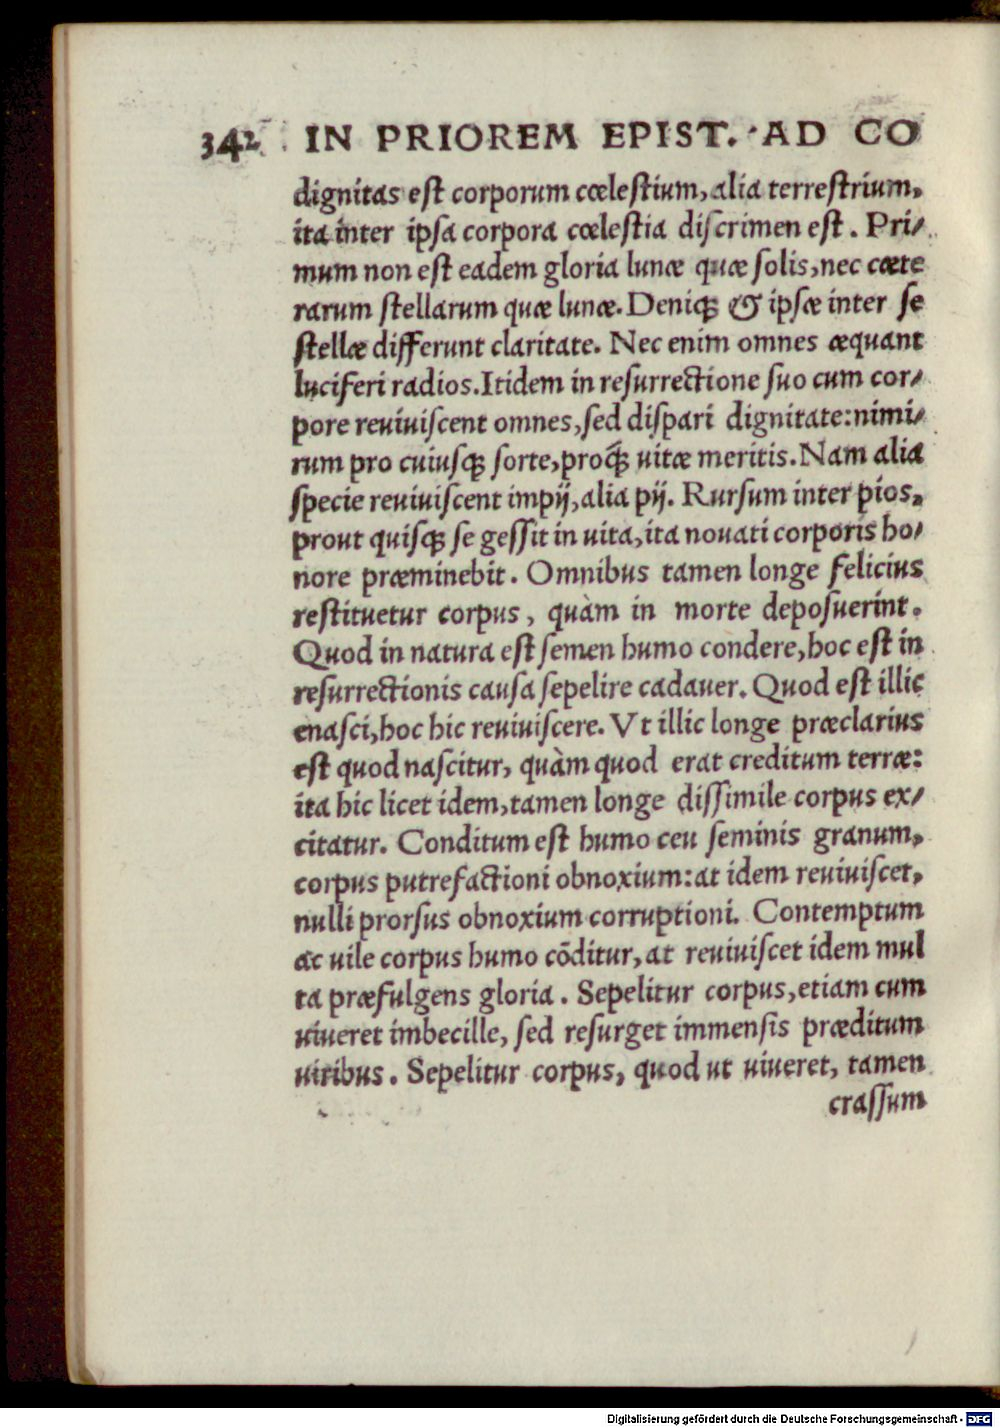 342 IN PRIOREM EPIST. AD CO
dignitas est corporum cœlestium, alia terrestrium,
ita inter ipsa corpora cœlestia discrimen est. Pri-
mum non est eadem gloria lunæ quæ solis, nec cæte
rarum stellarum quæ lunæ. Deniq; & ipsæ inter se
stellæ differunt claritate. Nec enim omnes æquant
luciferi radios. Itidem in resurrectione suo cum cor-
pore reuiuiscent omnes, sed dispari dignitate: nimi-
rum pro cuiusq; sorte, proq́; uitæ meritis. Nam alia
specie reuiuiscent impij, alia pij. Rursum inter pios,
prout quisq; se gessit in uita, ita nouati corporis ho-
nore præminebit. Omnibus tamen longe felicius
restituetur corpus, quàm in morte deposuerint.
Quod in natura est semen humo condere, hoc est in
resurrectionis causa sepelire cadauer. Quod est illic
enasci, hoc hic reuiuiscere. Vt illic longe præclarius
est quod nascitur, quàm quod erat creditum terræ:
ita hic licet idem, tamen longe dissimile corpus ex-
citatur. Conditum est humo ceu seminis granum,
corpus putrefactioni obnoxium: at idem reuiuiscet,
nulli prorsus obnoxium corruptioni. Contemptum
ac uile corpus humo cōditur, at reuiuiscet idem mul
ta præfulgens gloria. Sepelitur corpus, etiam cum
uiueret imbecille, sed resurget immensis præditum
uiribus. Sepelitur corpus, quod ut uiueret, tamen
crassum
Digitalisierung gefördert durch die Deutsche Forschungsgemeinschaft - DFG